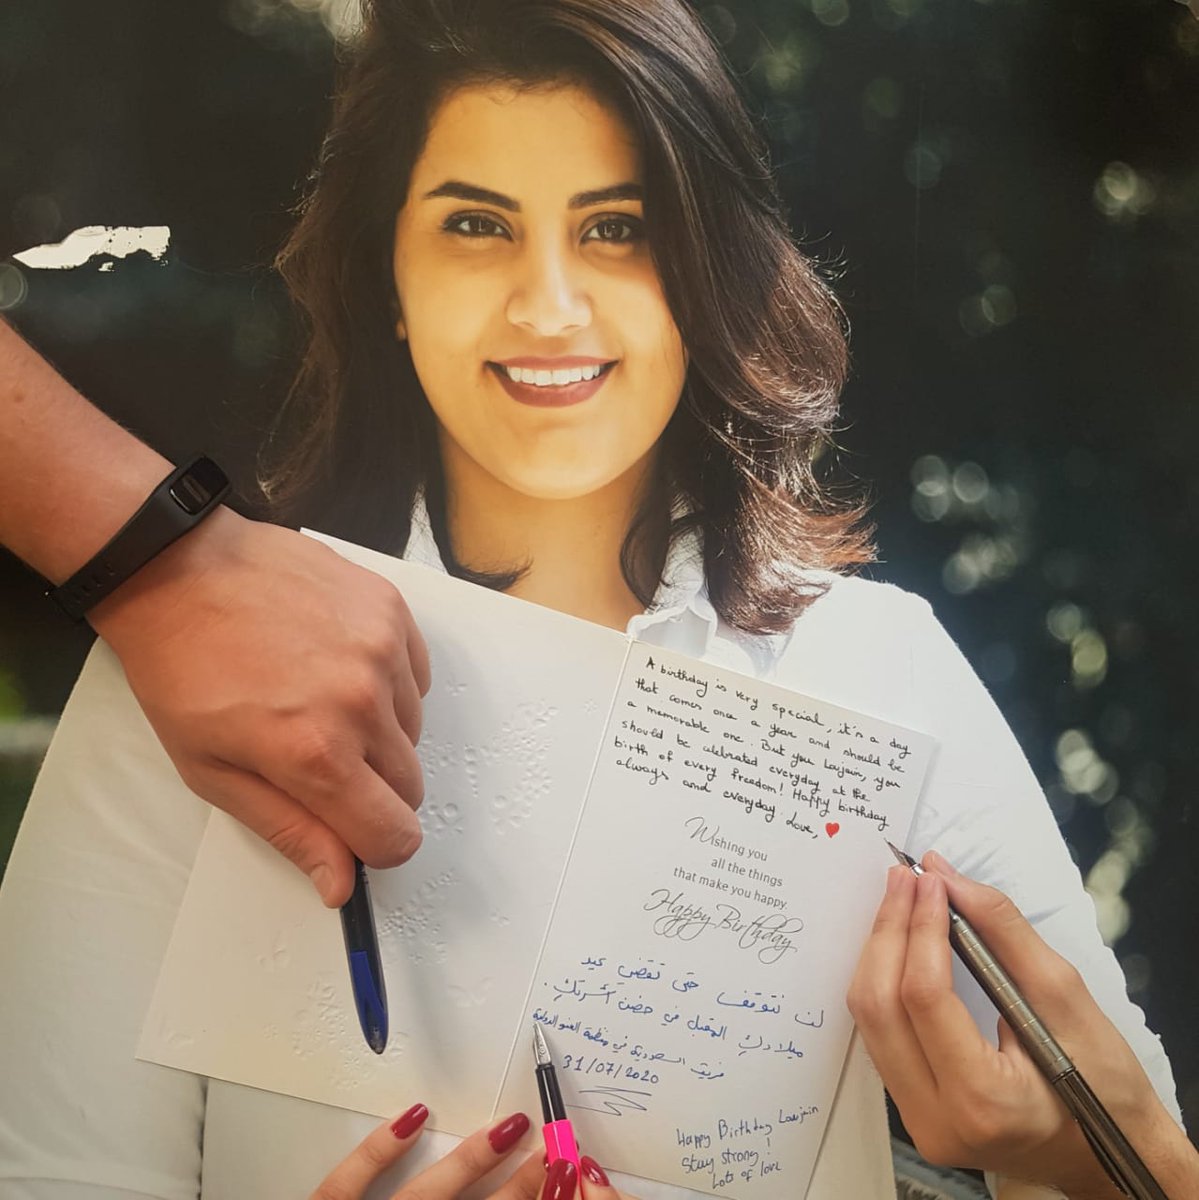 A birthday is very special, it's a day
that comes once a year and should be
a memorable one. But you Loujain, you
should be celebrated everyday at the
birth of every freedom! Happy birthday
always and everyday. Love,
Wishing you
all the things
that make you happy.
Happy Birthday
لن نتوقف حتى تقضي عيد
ميلادكِ المقبل في حضن أسرتكِ.
فريق السعودية في منظمة العفو الدولية
31/07/2020
Happy Birthday Loujain
!
Stay strong
Lots of love